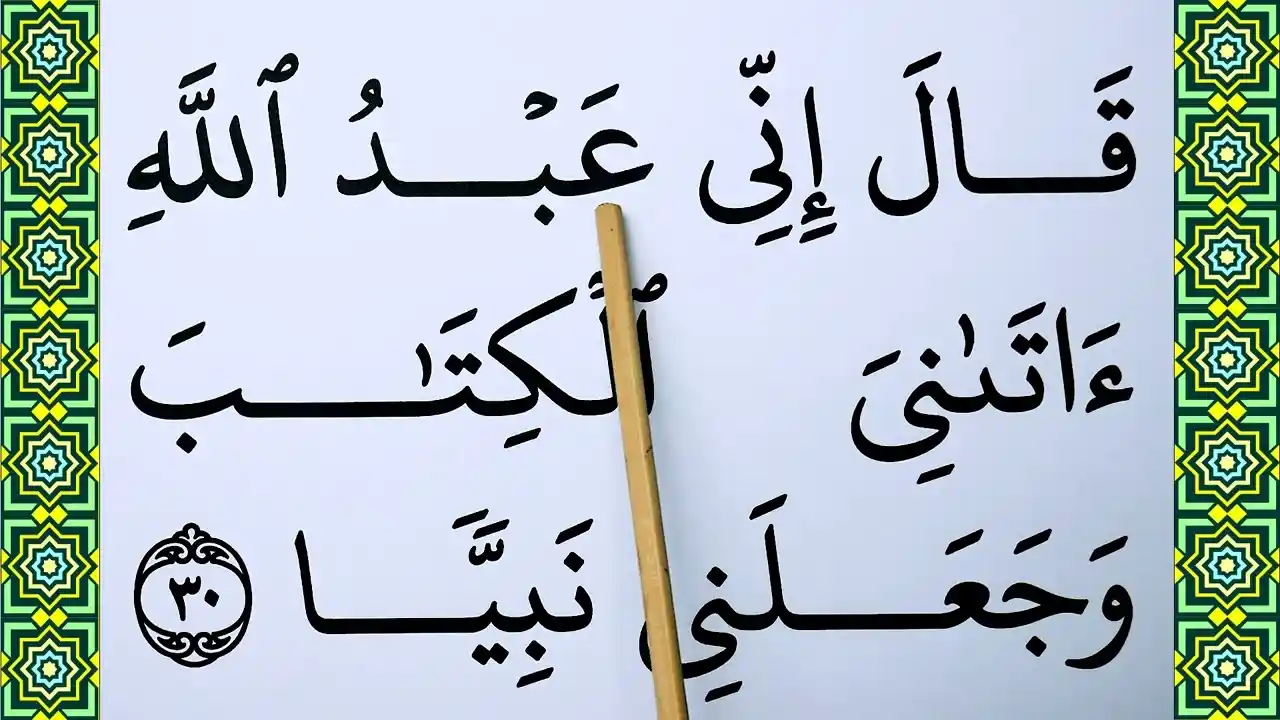 قَالَ إِنِّى عَبْدُ ٱللَّهِ
ءَاتَىٰنِىَ ٱلْكِتَٰبَ
وَجَعَلَنِى نَبِيًّا ٣٠